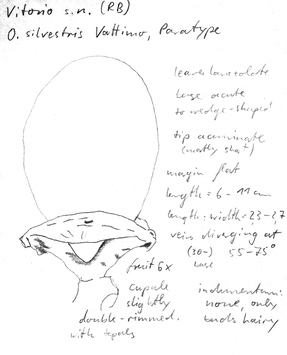 Vitorio s.n. (RB)
O. silvestris Vattimo, Paratype
leaves lanceolate
base acute
to wedge-shaped
tip acuminate
(mostly short)
margin flat
length = 6 - 11 cm
length : width = 2,3 - 2,7
veins diverging at
(30-) 55-75°
base
fruit 6x
cupule
slightly
double-rimmed.
with tepals
indumentum:
none, only
buds hairy